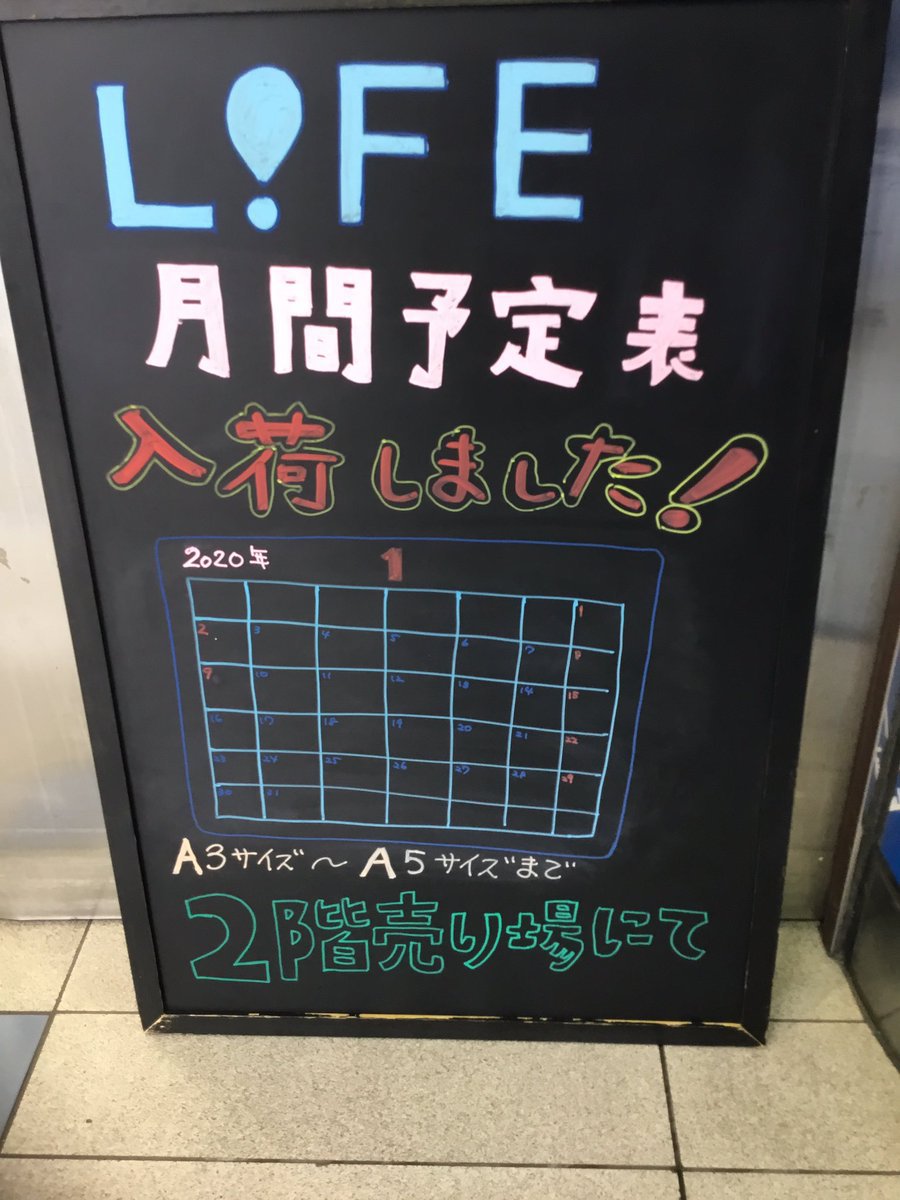 L!FE
月間予定表
入荷しました!
2020年 1
1
2 3 4 5 6 7 8
9 10 11 12 13 14 15
16 17 18 19 20 21 22
23 24 25 26 27 28 29
30 31
A3サイズ～A5サイズまで
2階売り場にて